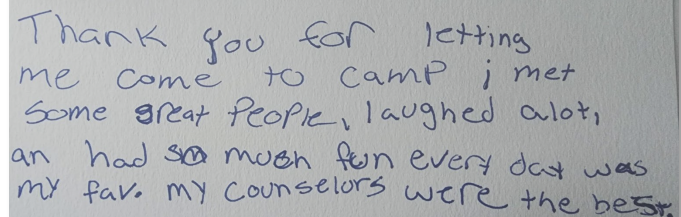 Thank you for letting
me come to camp i met
some great people, laughed alot,
an had so much fun every day was
my fav. my counselors were the best.